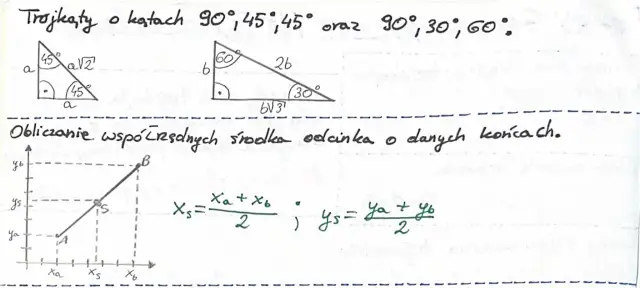 Trójkąty o kątach 90°, 45°, 45° oraz 90°, 30°, 60°.
45° a√2
a
45°
a
60° 2b
b
30°
b√3
Obliczanie współrzędnych środka odcinka o danych końcach.
yb B
ys S
ya A
xa xs xb
xs = (xa + xb)/2 ; ys = (ya + yb)/2